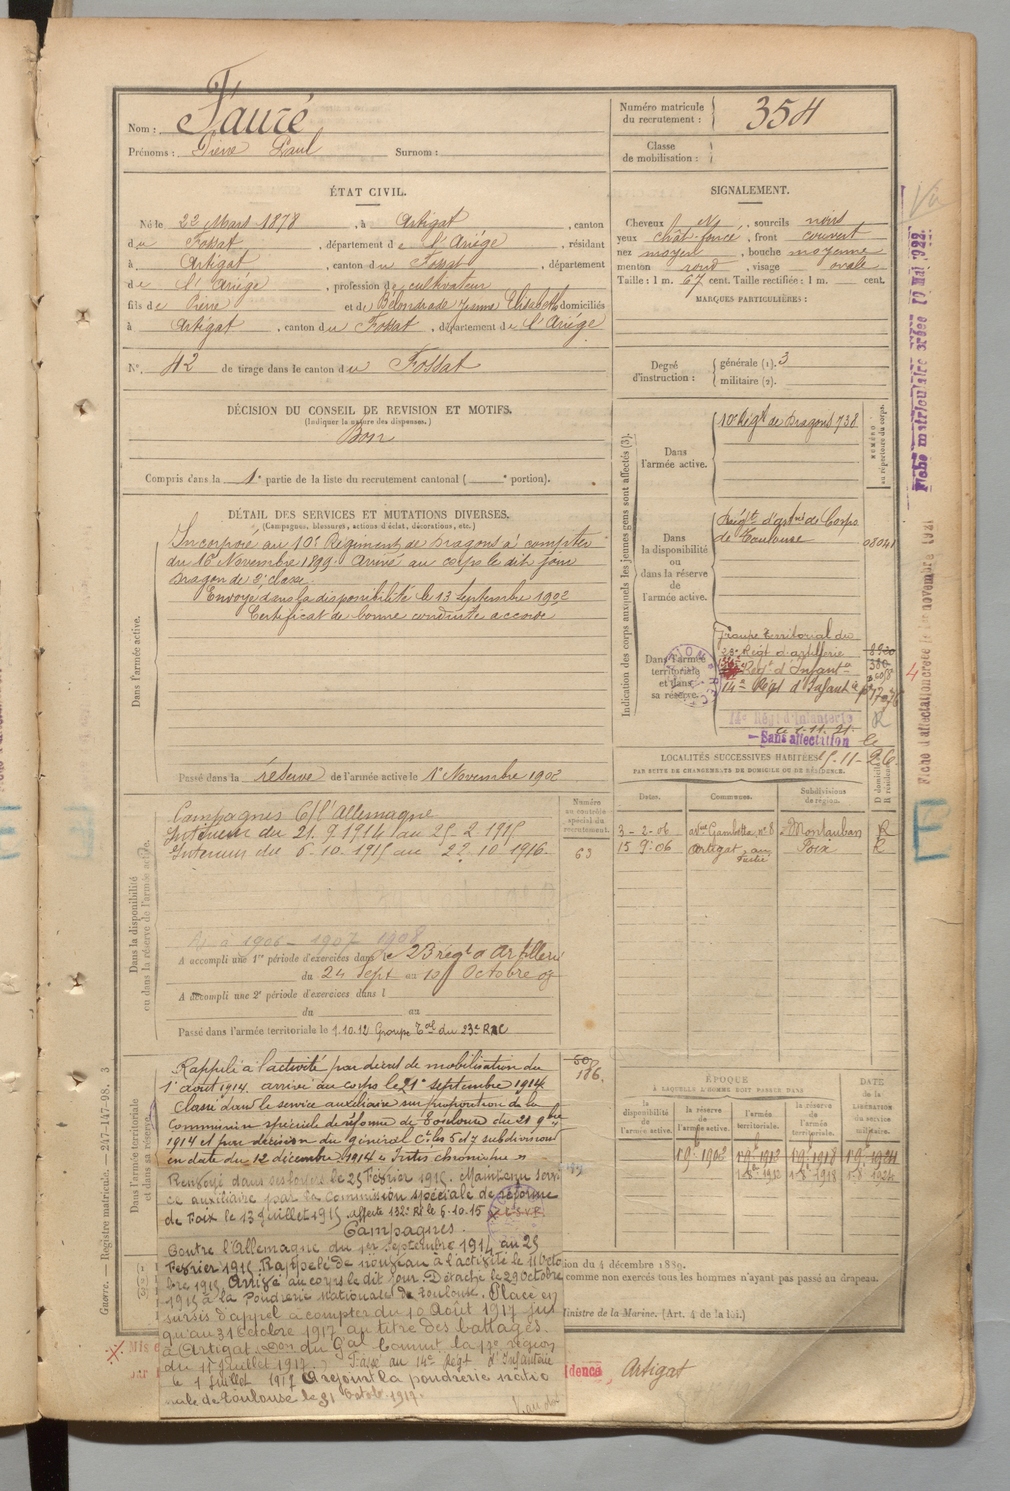 Nom : Fauré
Prénoms : Pierre Paul Surnom :
Numéro matricule du recrutement : 354
Classe de mobilisation :
ÉTAT CIVIL.
Né le 22 Mars 1878, à Artigat, canton
du Fossat, département de l'Ariège, résidant
à Artigat, canton du Fossat, département
de l'Ariège, profession de cultivateur
fils de Pierre et de Jeanne Elisabeth domiciliés
à Artigat, canton du Fossat, département de l'Ariège
N° 42 de tirage dans le canton du Fossat
SIGNALEMENT.
Cheveux N, sourcils noirs
yeux chât. foncé, front couvert
nez moyen, bouche moyenne
menton rond, visage ovale
Taille : 1 m. 67 cent. Taille rectifiée : 1 m. cent.
MARQUES PARTICULIÈRES :
Degré d'instruction : générale (1). 3
militaire (2).
DÉCISION DU CONSEIL DE REVISION ET MOTIFS.
(Indiquer la nature des dispenses.)
Bon
Compris dans la 1e partie de la liste du recrutement cantonal ( e portion).
DÉTAIL DES SERVICES ET MUTATIONS DIVERSES.
(Campagnes, blessures, actions d'éclat, décorations, etc.)
Dans l'armée active.
Incorporé au 10e Régiment de Dragons à compter
du 16 Novembre 1899. Arrivé au corps le dit jour
Dragon de 2e classe.
Envoyé dans la disponibilité le 13 Septembre 1902
Certificat de bonne conduite accordé
Passé dans la réserve de l'armée active le 1er Novembre 1902
Indication des corps auxquels les jeunes gens sont affectés (3).
NUMÉRO au répertoire du corps.
Dans l'armée active.
10e Régt de Dragons 738
Dans la disponibilité ou dans la réserve de l'armée active.
Régt d'artrie de Corps
de Toulouse 08041
Dans l'armée territoriale et dans sa réserve.
Groupe Territorial du
23e Régt d'artillerie
Régt d'Infantie 380
14e Régt d'Infantie
14e Régt d'Infanterie
Sans affectation
LOCALITÉS SUCCESSIVES HABITÉES
PAR SUITE DE CHANGEMENTS DE DOMICILE OU DE RÉSIDENCE.
Dates. Communes. Subdivisions de région. D domicile R résidence
3-2-06 avue Gambetta, n° 8 Montauban R
15 9 06 Artigat Foix R
Dans la disponibilité ou dans la réserve de l'armée active.
Numéro au contrôle spécial du recrutement.
63
Campagnes C/ l'Allemagne
Intérieur du 21.9.1914 au 25-2-1915
Intérieur du 6-10-1915 au 22.10.1916.
1906 - 1907 1908
A accompli une 1re période d'exercices dans le 23 régt d'Artillerie
du 24 Sept au Octobre
A accompli une 2e période d'exercices dans l
du au
Passé dans l'armée territoriale le 1.10.12 Groupe Tal du 23e RAC
Dans l'armée territoriale et dans sa réserve.
60
186
Rappelé à l'activité par décret de mobilisation du
1er août 1914. arrivé au corps le 21 septembre 1914
Classé dans le service auxiliaire sur proposition de la
Commission spéciale de réforme de Toulouse du 21 9bre
1914 et par décision du Général Ct les 5 et 7 subdivisions
en date du 12 décembre 1914
Renvoyé dans ses foyers le 25 Février 1915. Maintenu servi
ce auxiliaire par la Commission spéciale de réforme
de Foix le 13 Juillet 1915 affecté 132e RI le 6-10-15
Campagnes.
Contre l'Allemagne du 1er septembre 1914 au 25
Février 1915. Rappelé de nouveau à l'activité le 11 Octo
bre 1915 Arrivé au corps le dit jour. Détaché le 29 Octobre
1915 à la Poudrerie Nationale de Toulouse. Placé en
sursis d'appel à compter du 10 Août 1917 jus
qu'au 31 Octobre 1917 au titre des battages.
à Artigat du Gal Commt la 17e région
du Juillet 1917. Passé au 14e Régt d'Infanterie
le 1 Juillet 1917 A rejoint la poudrerie natio
nale de Toulouse le 31 Octob. 1917.
ÉPOQUE
À LAQUELLE L'HOMME DOIT PASSER DANS
la disponibilité de l'armée active. la réserve de l'armée active. l'armée territoriale. la réserve de l'armée territoriale.
DATE de la LIBÉRATION du service militaire.
ion du 4 décembre 1889.
comme non exercés tous les hommes n'ayant pas passé au drapeau.
inistre de la Marine. (Art. 4 de la loi.)
dence Artigat
Guerre. — Registre matricule. — 247-147-98. 3
Fiche matriculaire créée 10 Mai 1922.
Fiche d'affectation créée le novembre 1921
E